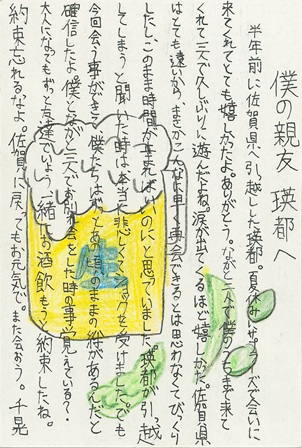 僕の親友 瑛都へ
半年前に佐賀県へ引越しした瑛都。夏休みにサプライズで会いに
来てくれてとても嬉しかったよ。ありがとう。ながと二人で僕のうちまで来て
くれて三人で久しぶりに遊んだよね。涙が出てくるほど嬉しかった。佐賀県
はとても遠いから、まさかこんなに早く再会できるとは思わなくてびっくり
したし、このまま時間が止まればいいのにと思っていました。瑛都が引っ越
してしまうと聞いた時は、本当に悲しくてショックを受けました。でも
今回会う事ができて、僕たちはずっとあの時のままの絆があるんだと
確信したよ。僕とながと三人でお別れ会をした時の事覚えている?
大人になってもずっと友達でいよう。一緒にお酒飲もう。約束したね。
約束忘れるなよ。佐賀に戻ってもお元気で。また会おう。 千晃